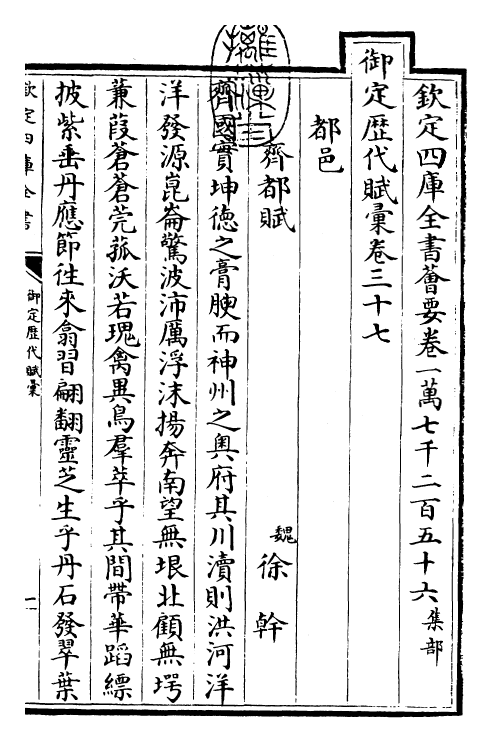 欽定四庫全書薈要卷一萬七千二百五十六集部
御定歴代賦彚卷三十七
都邑
齊都賦
魏徐幹
齊國實坤徳之膏腴而神州之奥府其川瀆則洪河洋
洋發源崑崙驚波沛厲浮沫揚奔南望無垠北顧無堮
蒹葭蒼蒼莞菰沃若瑰禽異鳥羣萃乎其間帶華蹈縹
披紫垂丹應節徃來翕習翩翻靈芝生乎丹石發翠葉
欽定四庫全書
御定歴代賦彚
一